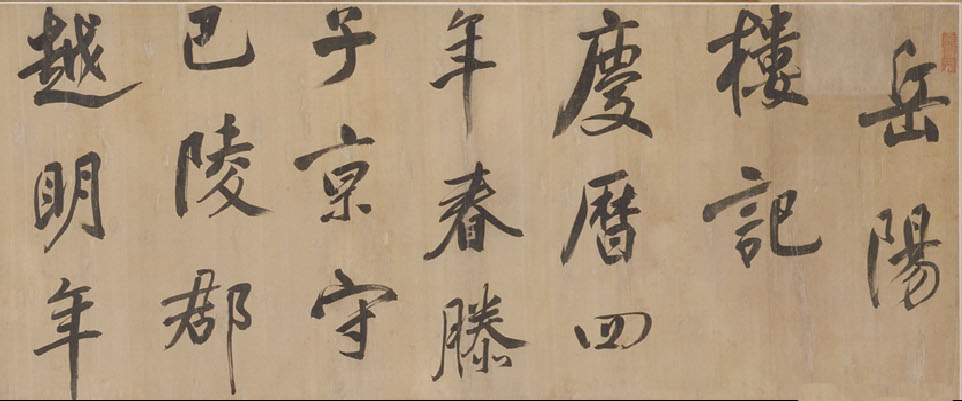 岳陽
樓記
慶曆四
年春滕
子京守
巴陵郡
越明年